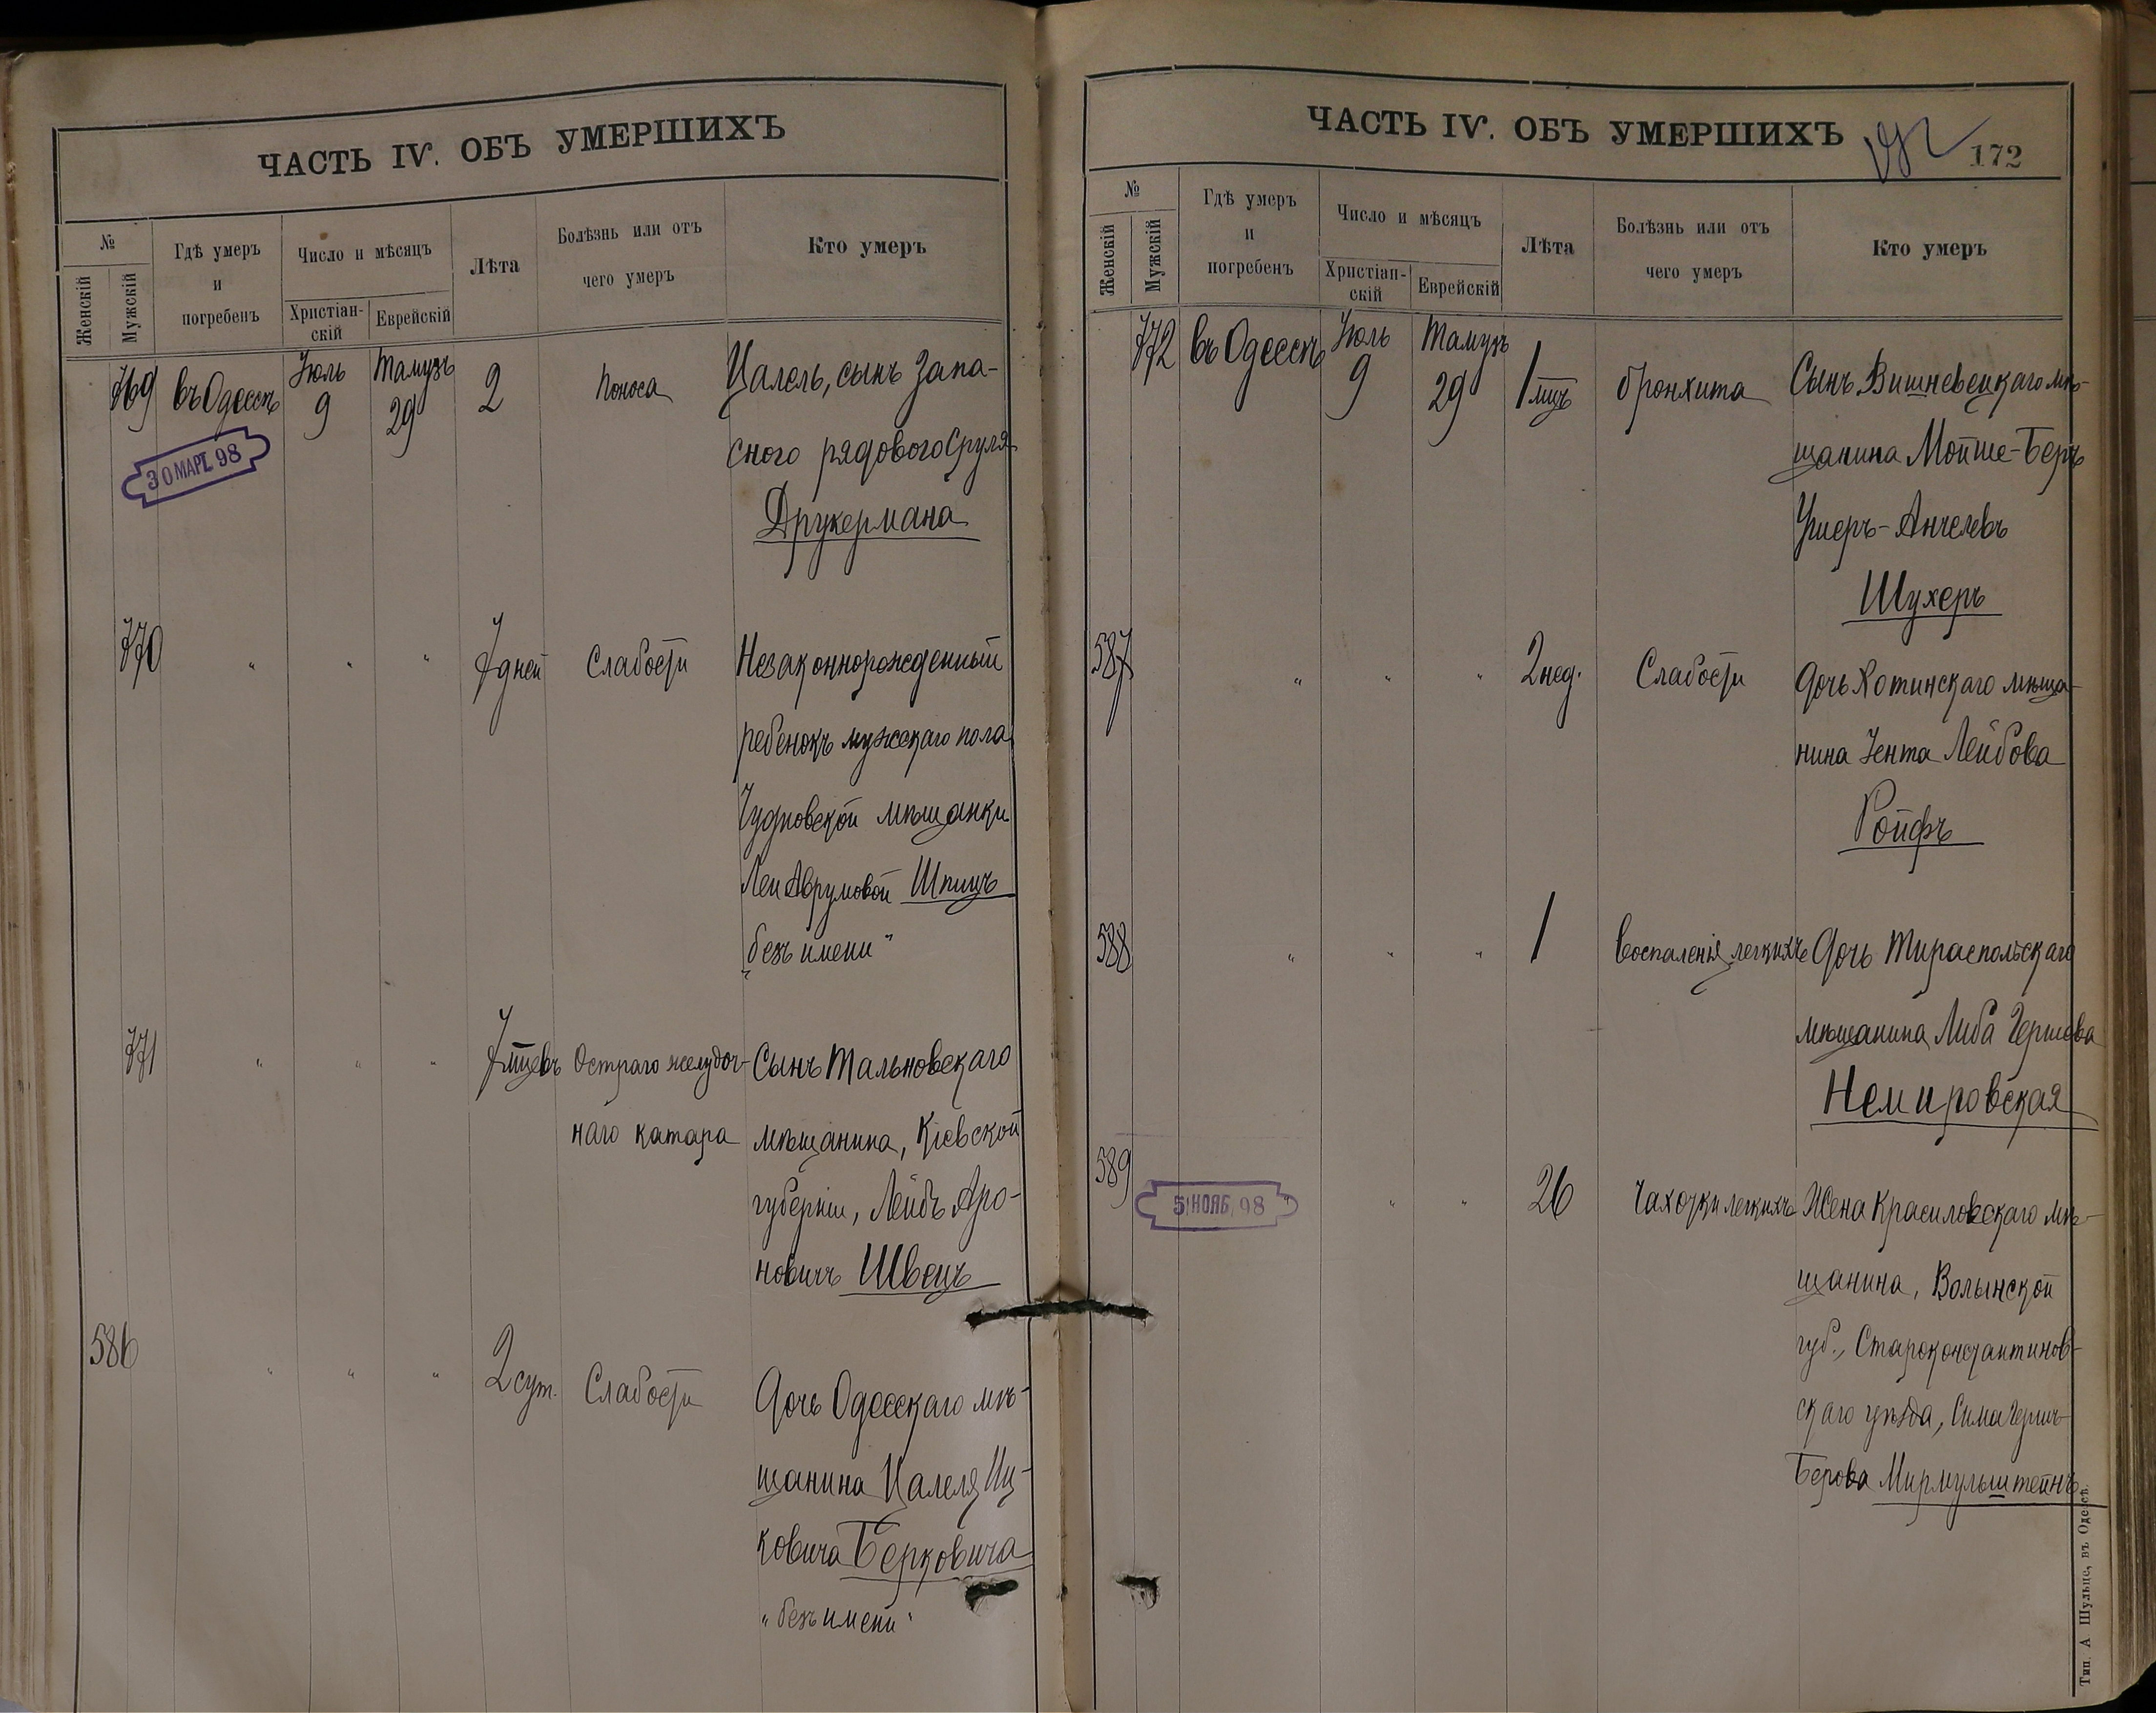 ЧАСТЬ IV. ОБЪ УМЕРШИХЪ
№
Женскій
Мужскій
Гдѣ умеръ
и
погребенъ
Число и мѣсяцъ
Христіан-
скій
Еврейскій
Лѣта
Болѣзнь или отъ
чего умеръ
Кто умеръ
769 въ Одессѣ Іюль 9 Тамузъ 29 2 Поноса Цалель, сынъ запа-
сного рядового Сруля
Друкермана
30 МАРТ. 98
770 " " " 7 дней Слабости Незаконнорожденный
ребенокъ мужскаго пола
Чудновской мѣщанки
Леи Аврумовой Шпицъ
"безъ имени"
771 " " " 7 мцевъ Остраго желудоч- Сынъ Тальновскаго
наго катара мѣщанина, Кіевской
губерніи, Лейбъ Аро-
новичъ Швецъ
586 " " " 2 сут. Слабости Дочь Одесскаго мѣ-
щанина Цалеля Иц-
ковича Берковича
"безъ имени"
ЧАСТЬ IV. ОБЪ УМЕРШИХЪ
172
№
Женскій
Мужскій
Гдѣ умеръ
и
погребенъ
Число и мѣсяцъ
Христіан-
скій
Еврейскій
Лѣта
Болѣзнь или отъ
чего умеръ
Кто умеръ
772 въ Одессѣ Іюль 9 Тамузъ 29 1 мцъ бронхита Сынъ Вишневецкаго мѣ-
щанина Мойше-Беръ
Ушеръ-Анчелевъ
Шухеръ
587 " " " 2 нед. Слабости Дочь Хотинскаго мѣща-
нина Іента Лейбова
Ройфъ
588 " " " 1 Воспаленія легкихъ Дочь Тираспольскаго
мѣщанина Либа Гершова
Немировская
589 " " " 26 Чахотки легкихъ Жена Красиловскаго мѣ-
5 НОЯБ. 98
щанина, Волынской
губ., Староконстантинов-
скаго уѣзда, Сима Гершъ-
Берова Мирмульштейнъ
Тип. А Шульце, въ Одессѣ.